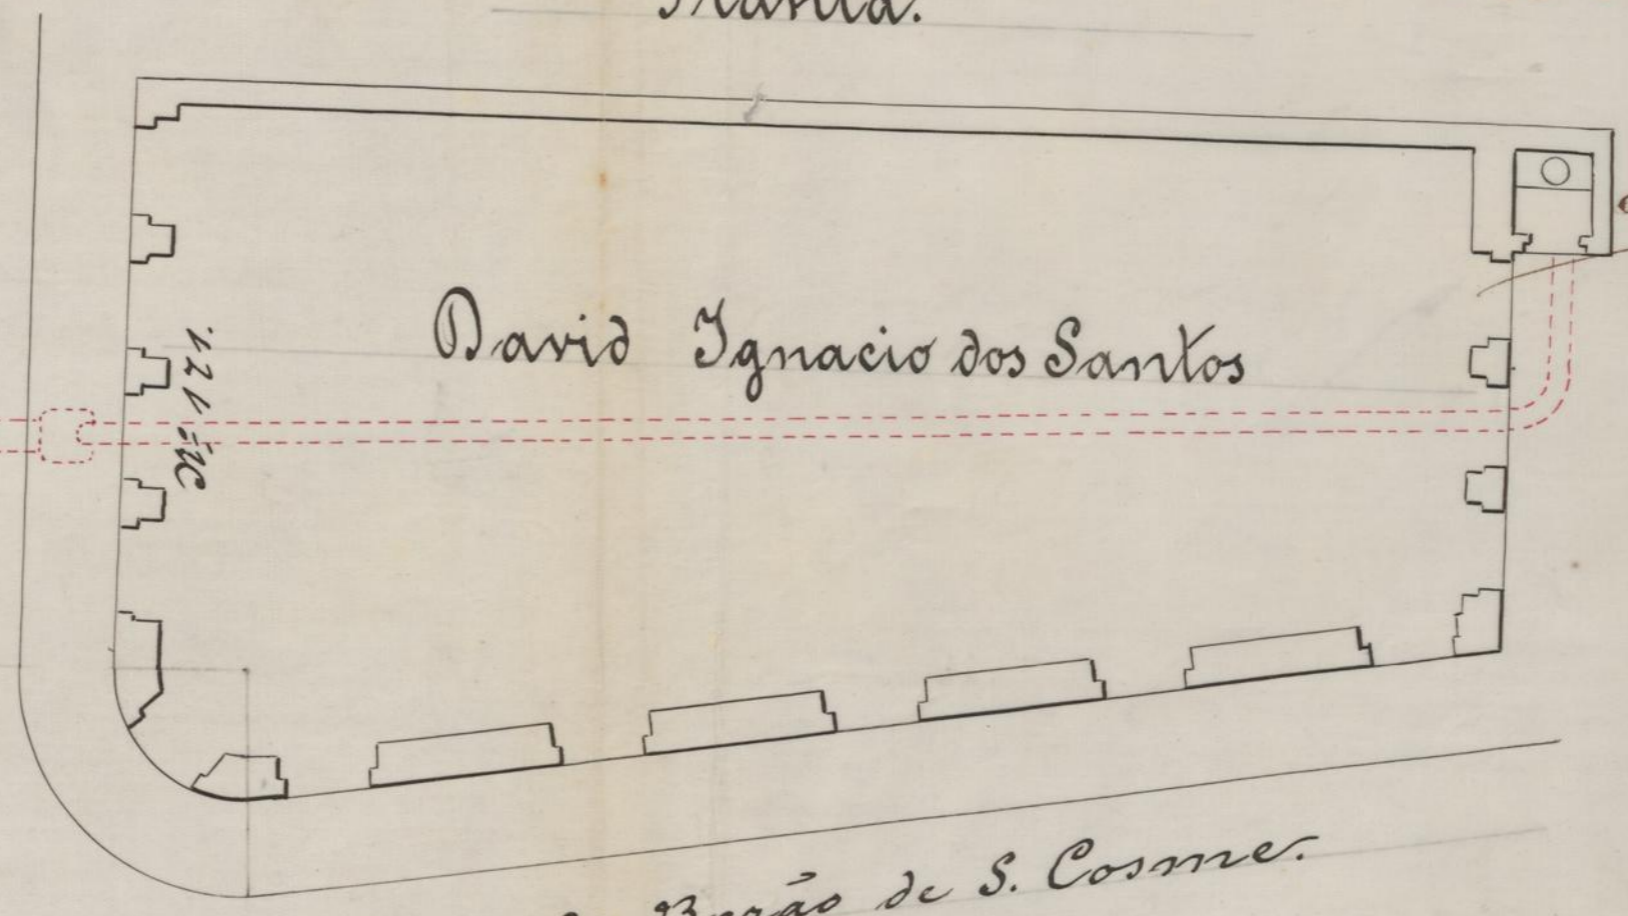 Planta.
David Ignacio dos Santos
Nº 121
Barão de S. Cosme.